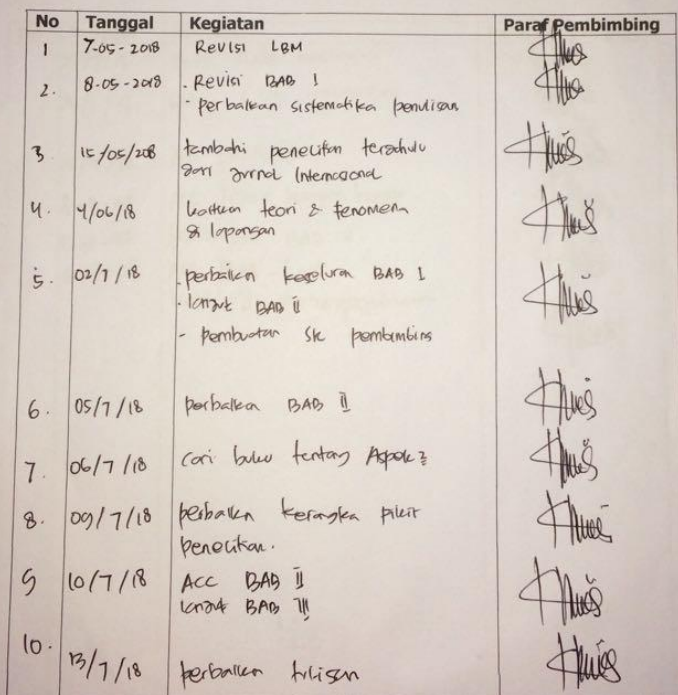 No Tanggal Kegiatan Paraf Pembimbing
1 7-05-2018 Revisi LBM
2. 8-05-2018 - Revisi BAB I
- perbaikan sistematika penulisan
3 15/05/208 tambahi penelitian terdahulu
dari Jurnal Internasional
4. 4/06/18 kaitkan teori & fenomena
di lapangan
5. 02/7/18 - perbaikan keseluruan BAB I
- lanjut BAB II
- pembuatan SK pembimbing
6. 05/7/18 perbaikan BAB II
7. 06/7/18 cari buku tentang Aspek2
8. 09/7/18 perbaikan kerangka pikir
penelitian.
9 10/7/18 ACC BAB II
lanjut BAB III
10. 13/7/18 perbaikan tulisan